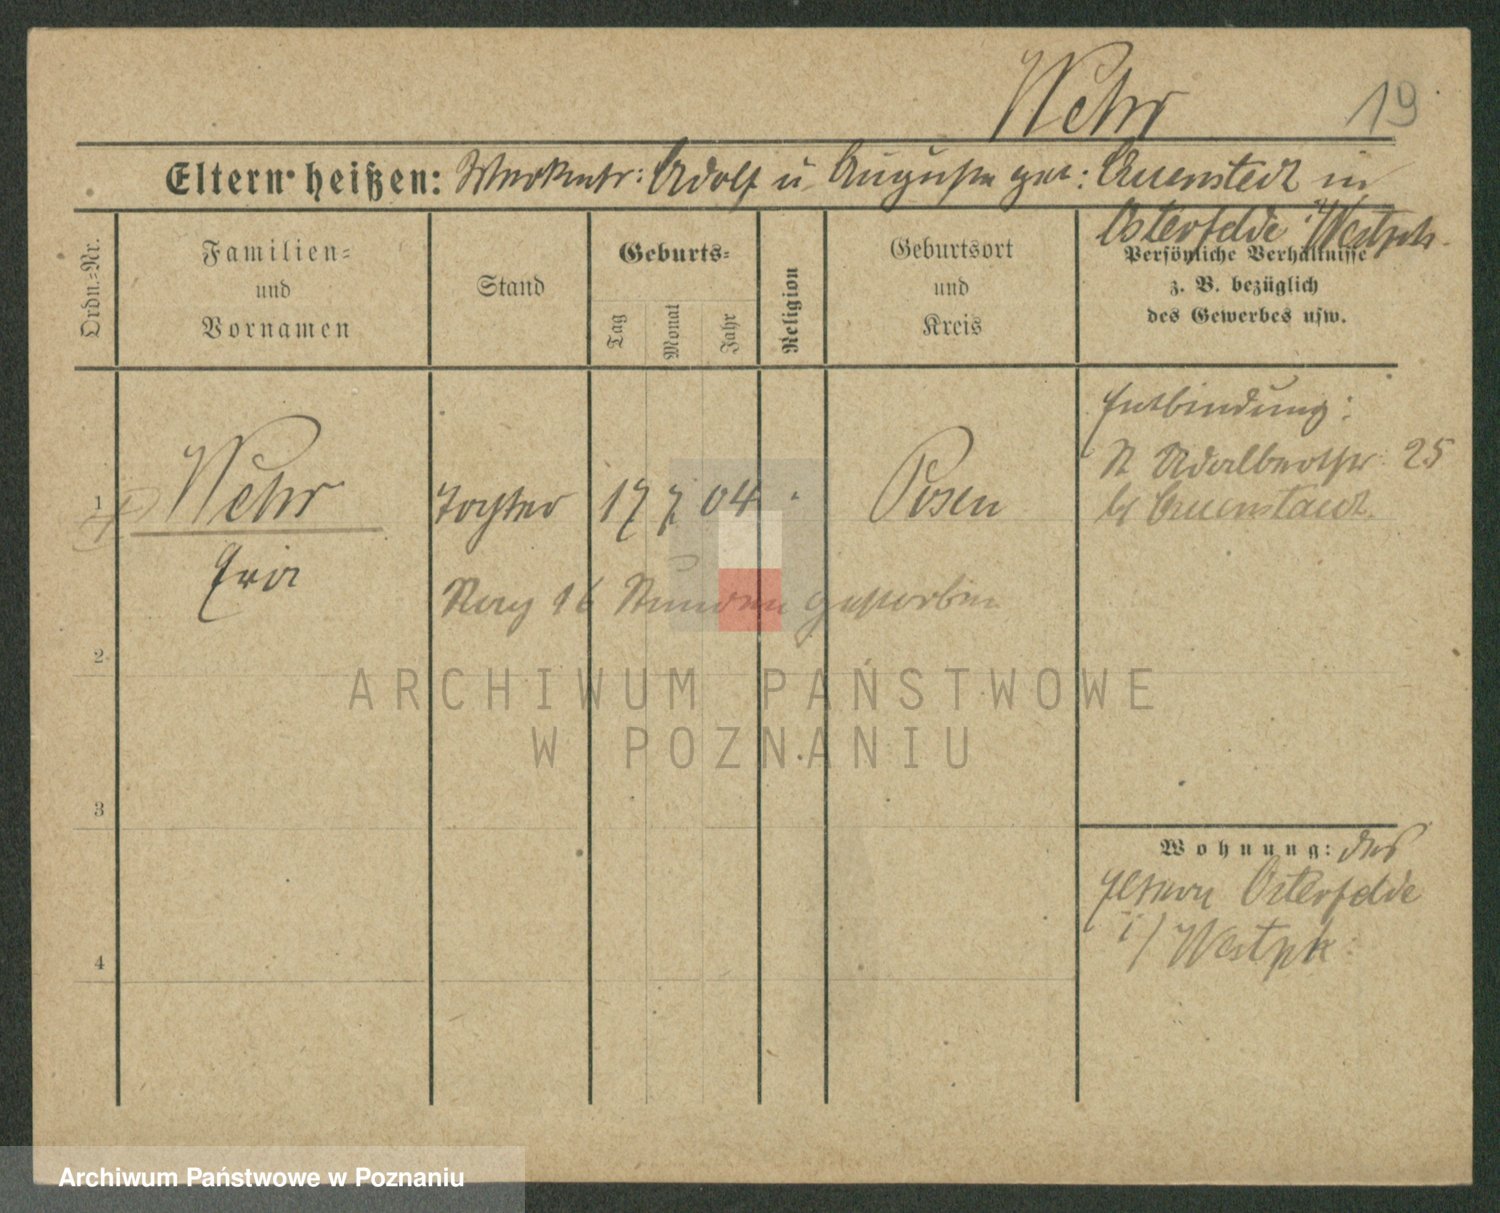 Wehr 19
Eltern heißen: Werkmstr: Adolf u Auguste geb: Auenstedt in
Osterfelde i/Westph.
Ordn.-Nr.
Familien-
und
Vornamen
Stand
Geburts-
Tag
Monat
Jahr
Religion
Geburtsort
und
Kreis
Persönliche Verhältnisse
z. B. bezüglich
des Gewerbes usw.
1
Wehr
Eva
Tochter
17 7 04
Posen
Entbindung:
St Adalbertstr. 25
b/
Nach 16 Stunden gestorben
2
3
4
Wohnung: der
Eltern Osterfelde
i/ Westph:
ARCHIWUM PAŃSTWOWE
W POZNANIU
Archiwum Państwowe w Poznaniu